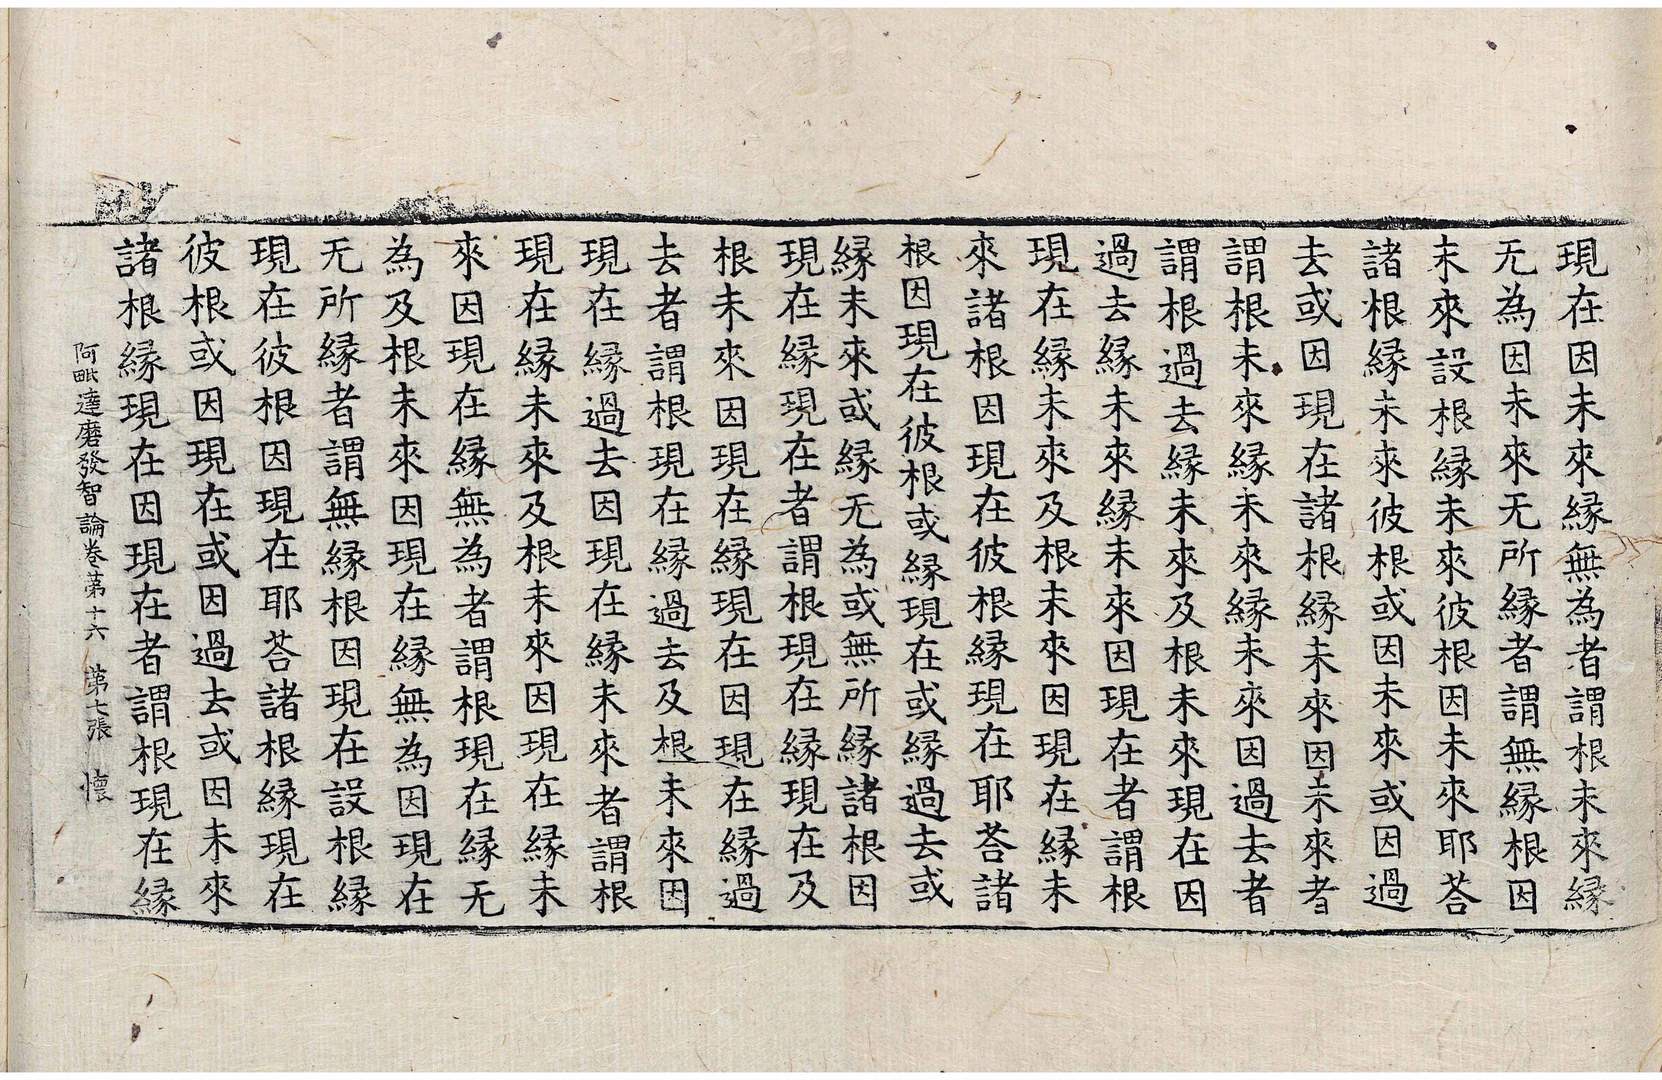 現在因未來縁無為者謂根未來縁
无為因未來无所縁者謂無縁根因
未來設根縁未來彼根因未來耶荅
諸根縁未來彼根或因未來或因過
去或因現在諸根縁未來因未來者
謂根未來縁未來縁未來因過去者
謂根過去縁未來及根未來現在因
過去縁未來縁未來因現在者謂根
現在縁未來及根未來因現在縁未
來諸根因現在彼根縁現在耶荅諸
根因現在彼根或縁現在或縁過去或
縁未來或縁无為或無所縁諸根因
現在縁現在者謂根現在縁現在及
根未來因現在縁現在因現在縁過
去者謂根現在縁過去及根未來因
現在縁過去因現在縁未來者謂根
現在縁未來及根未來因現在縁未
來因現在縁無為者謂根現在縁无
為及根未來因現在縁無為因現在
无所縁者謂無縁根因現在設根縁
現在彼根因現在耶荅諸根縁現在
彼根或因現在或因過去或因未來
諸根縁現在因現在者謂根現在縁
阿毗達磨發智論卷第十六 第七張 懷